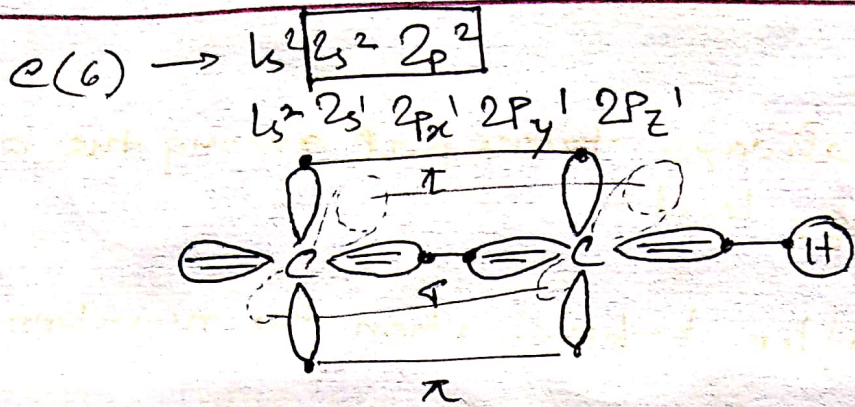 C(6) → 1s² 2s² 2p²
1s² 2s¹ 2px¹ 2py¹ 2pz¹
π
C C H
σ
π